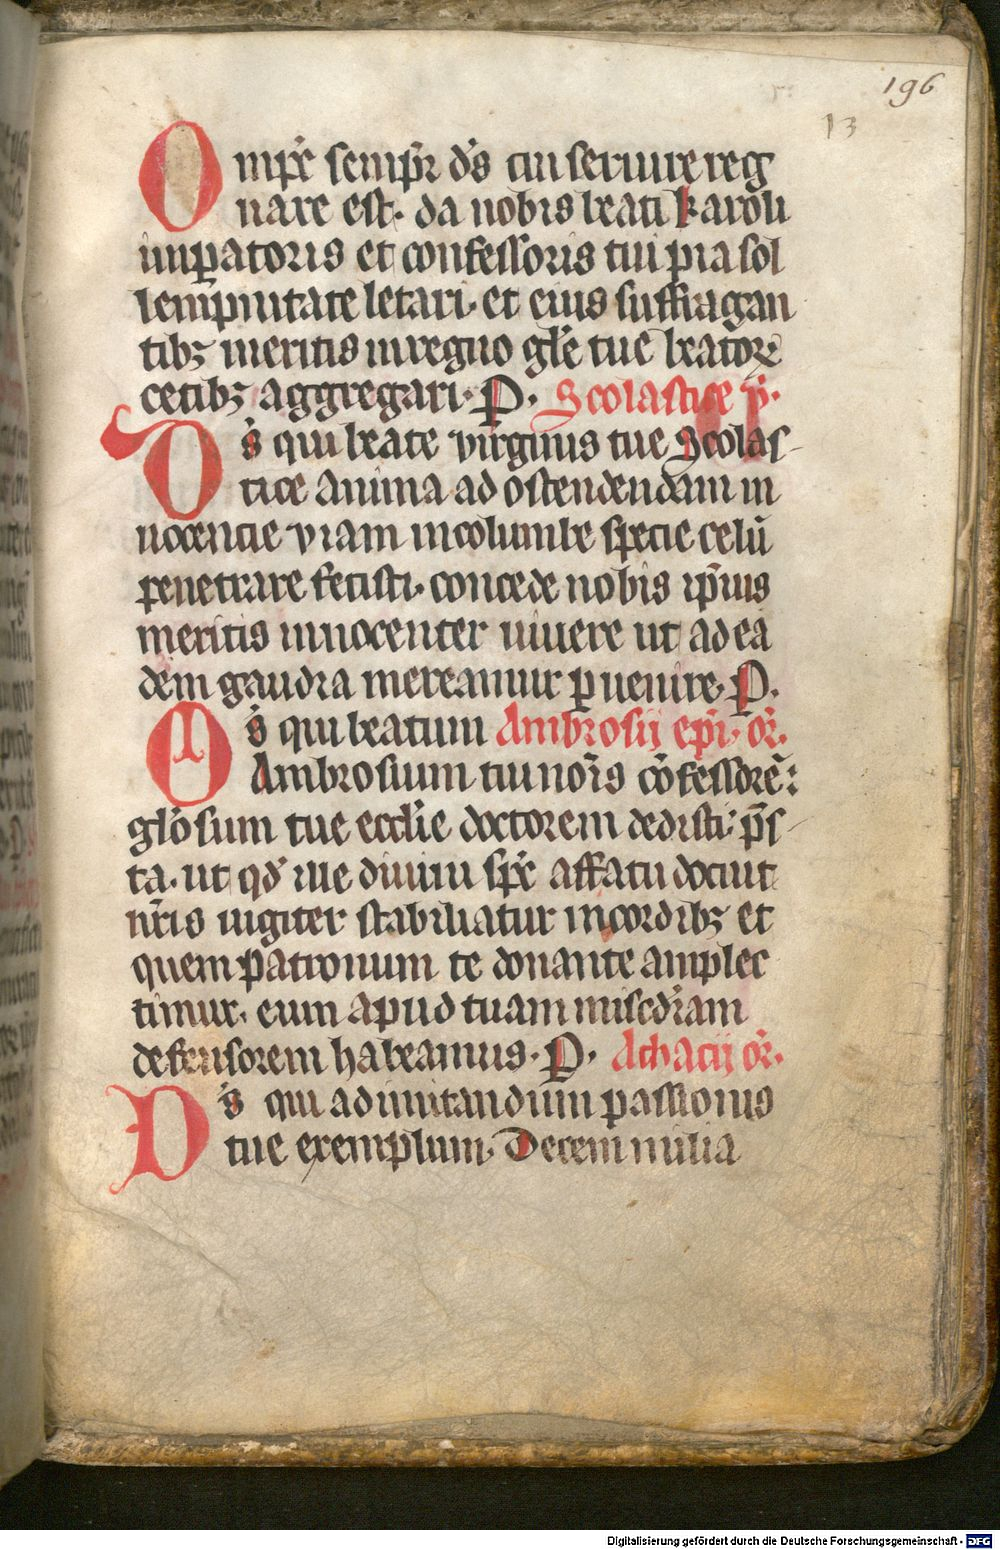 196
13
Omp̄s semp̄r d̄s cui seruire reg
nare est. da nobis beati karoli
imꝑatoris et confessoris tui pia sol
lempnitate letari. et eius suffragan
tibꝫ meritis in regno gl̄e tue beatōrꝫ
cetibꝫ aggregari. P. Scolastice v̄.
Ds̄ qui beate virginis tue Scolas-
tice anima ad ostendendam in
nocencie viam in columbe specie celū
penetrare fecisti. concede nobis ip̄ius
meritis innocenter uiuere ut ad ea
dem gaudia mereamur ꝑuenire. P.
Ds̄ qui beatum Ambrosij ep̄i. or̄.
Ambrosium tui nōis cōfessorē:
gl̄osum tue eccl̄ie doctorem dedisti. p̄s-
ta. ut qd̄ ille diuini sp̄c affatu docuit
nr̄is iugiter stabiliatur in cordibꝫ et
quem patronum te donante amplec
timur. eum apud tuam miscd̄iam
defensorem habeamus. P. Achacij or̄.
Ds̄ qui ad imitandum passionis
tue exemplum. Decem milia
Digitalisierung gefördert durch die Deutsche Forschungsgemeinschaft - DFG